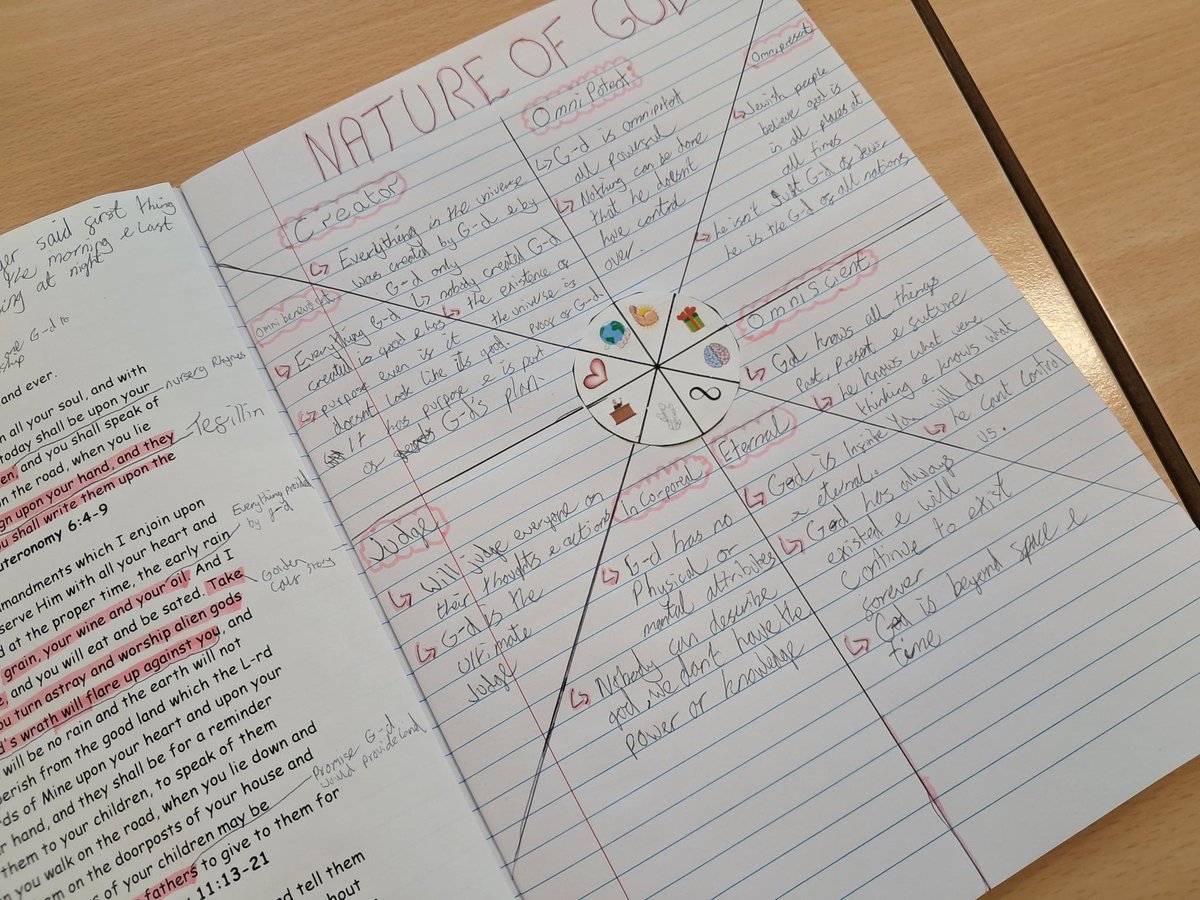 er said first thing
the morning & last
ing at night
and ever.
all your soul, and with
today shall be upon your
nursery Rhymes
en, and you shall speak of
on the road, when you lie
ign upon your hand, and they
Tefillin
ou shall write them upon the
uteronomy 6:4-9
mandments which I enjoin upon
Everything provided
by g-d
serve Him with all your heart and
d at the proper time, the early rain
grain, your wine and your oil. And I
Golden
Calf story
, and you will eat and be sated. Take
ou turn astray and worship alien gods
d's wrath will flare up against you, and
will be no rain and the earth will not
perish from the good land which the L-rd
ds of Mine upon your heart and upon your
r hand, and they shall be for a reminder
them to your children, to speak of them
n you walk on the road, when you lie down and
em on the doorposts of your house and
Promise G-d
would provide land
s of your children may be
fathers to give to them for
11:13-21
nd tell them
NATURE OF GOD
Creator
Everything in the universe
was created by G-d & by
G-d only
nobody created G-d
the existence of
the universe is
proof of G-d
Omni Potent
G-d is omnipotent
all powerful
Nothing can be done
that he doesn't
have control
over.
Omnipresent
Jewish people
believe god is
in all places at
all times
he isn't just G-d of Jews,
he is the G-d of all nations
Omniscient
God knows all things
past, present & future
he knows what were
thinking & knows what
you will do
he cant control
us.
Omnibenevolent
Everything G-d
created is good & has
purpose even is it
doesn't look like its good.
It has purpose & is part
of G-d's plan.
Judge
Will judge everyone on
their thoughts & actions
G-d is the
ultimate
Judge
In Corporeal
G-d has no
Physical or
mental attributes
Nobody can describe
god, we dont have the
power or knowledge
Eternal
God is infinite
& eternal.
God has always
existed & will
continue to exist
forever
God is beyond space &
time